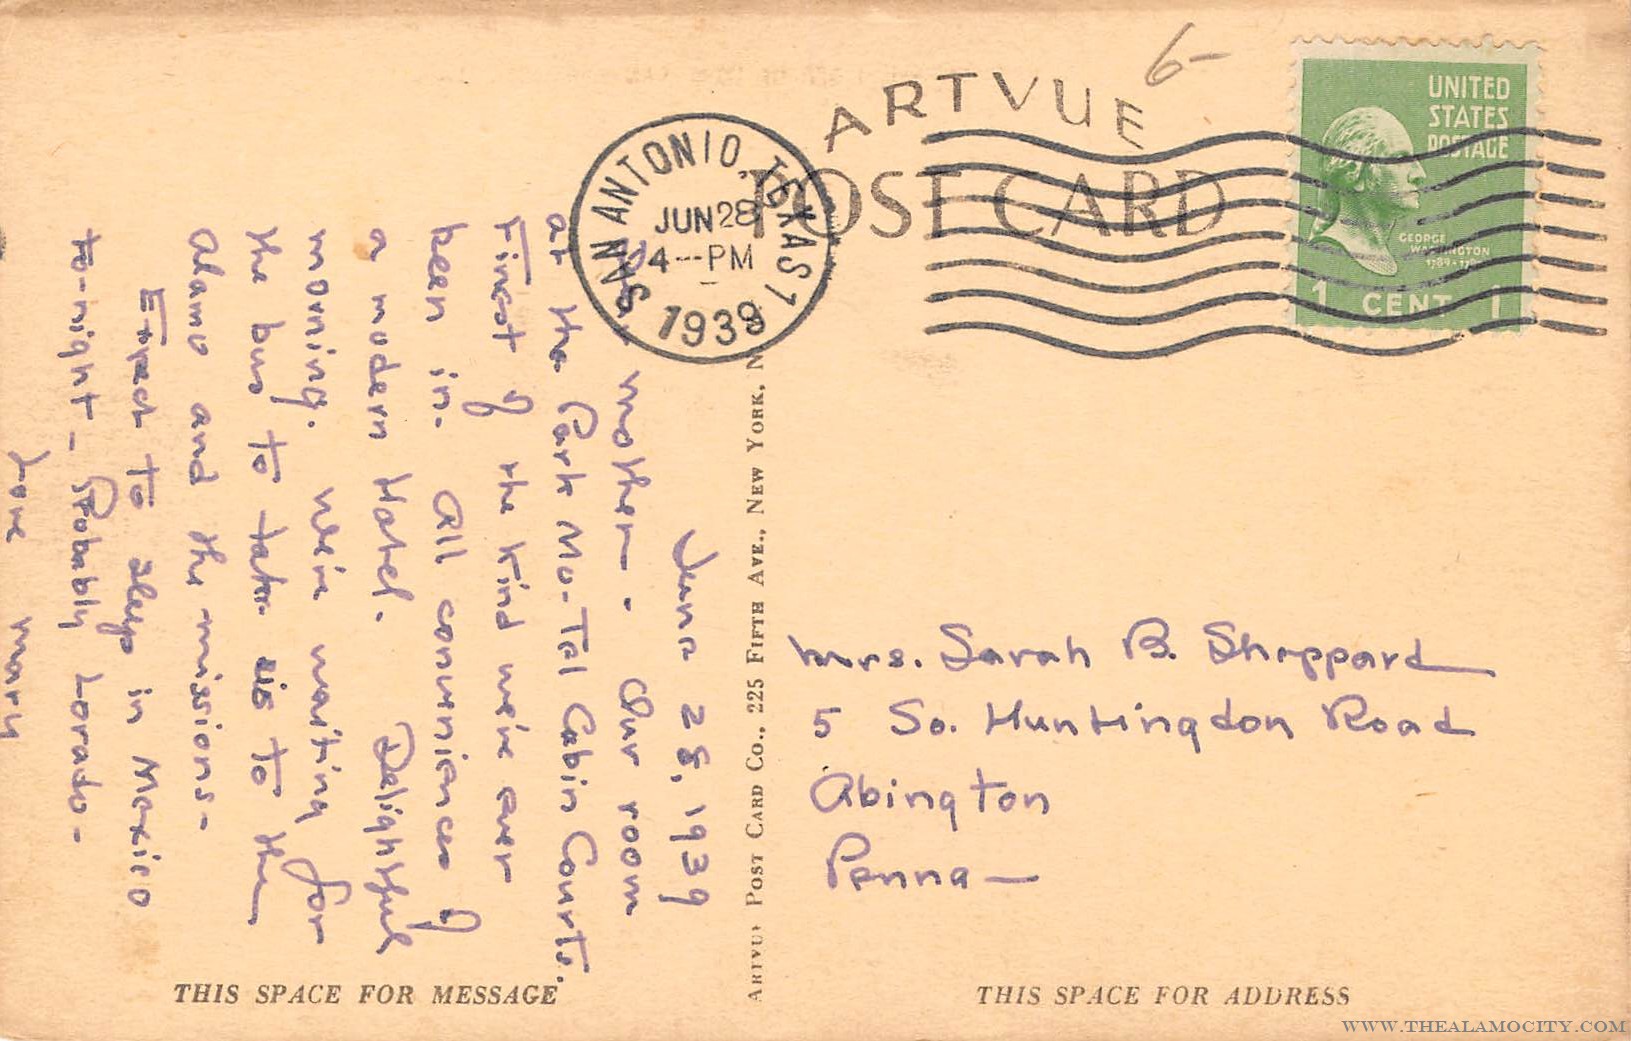 6-
ARTVUE
POST CARD
SAN ANTONIO, TEXAS 1
JUN 28
4---PM
1939
UNITED
STATES
POSTAGE
GEORGE
WASHINGTON
1 CENT 1
June 28, 1939
Dear Mother - Our room
at the Park Mo-Tel Cabin Courts.
Finest of the kind we've ever
been in. All conveniences of
a modern Hotel. Delightful
morning. We're waiting for
the bus to take us to the
Alamo and the missions -
Expect to sleep in Mexico
to-night - Probably Lorado -
Love Mary
ARTVUE POST CARD CO., 225 FIFTH AVE., NEW YORK, N
Mrs. Sarah B. Sheppard
5 So. Huntingdon Road
Abington
Penna -
THIS SPACE FOR MESSAGE
THIS SPACE FOR ADDRESS
WWW.THEALAMOCITY.COM